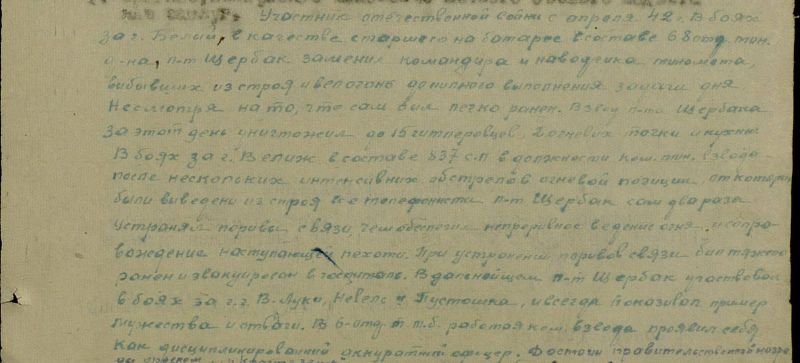 Участник отечественной войны с апреля 42 г. В боях
за г. Белый, в качестве старшего на батарее в составе 68 отд. мин.
д-на, л-т Щербак заменил командира и наводчика миномета,
выбывших из строя и вел огонь до полного выполнения задачи дня
Несмотря на то, что сам был легко ранен. Взвод л-та Щербака
за этот день уничтожил до 15 гитлеровцев, 2 огневых точки и кухню
В боях за г. Велиж в составе 837 с.п в должности ком. мин. взвода
после нескольких интенсивных обстрелов огневой позиции, от которых
были выведены из строя все телефонисты л-т Щербак сам два раза
устранял порывы связи, чем обеспечил непрерывное ведение огня и сопро-
вождение наступающей пехоты. При устранении порывов связи был тяжело
ранен и эвакуирован в госпиталь. В дальнейшем л-т Щербак участвовал
в боях за г.г. В-Луки, Невель и Пустошка, и всегда показывал пример
мужества и отваги. В 6-отд работая ком. взвода проявил себя
как дисциплинированный аккуратный офицер. Достоин правительственной